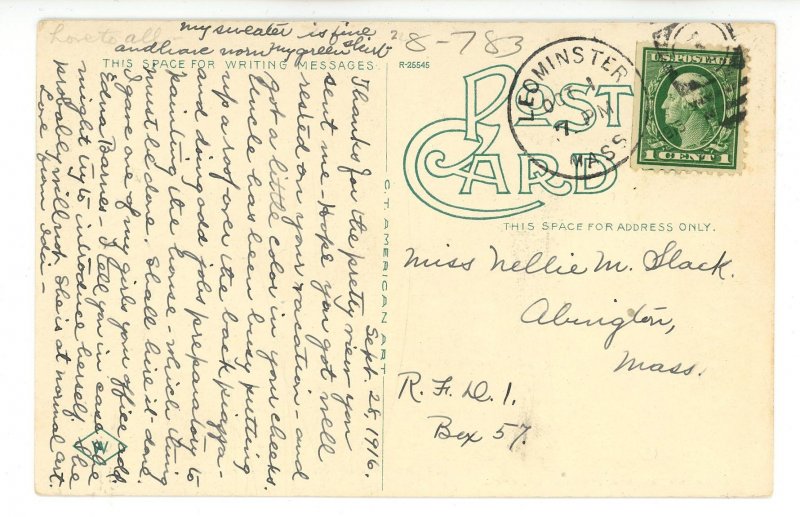 Love to all
my sweater is fine
and have worn my green skirt
THIS SPACE FOR WRITING MESSAGES
R-25545
8-783
Sept. 28, 1916.
Thanks for the pretty view you
sent me - Hope you got well
rested on your vacation - and
got a little color in your cheeks.
Uncle has been busy putting
up a roof over the back piazza -
and doing odd jobs preparatory to
painting the house - which thing
must be done. Shall hire it done.
I gave one of my girls your office add.
Edna Barnes - I tell you in case she
might try to introduce herself. She
probably will not. She is at normal art.
Love from
C.T. AMERICAN ART
POST
CARD
LEOMINSTER
MASS
U.S. POSTAGE
1 CENT 1
THIS SPACE FOR ADDRESS ONLY.
Miss Nellie M. Slack.
Abington,
Mass.
R.F.D. 1.
Box 57.